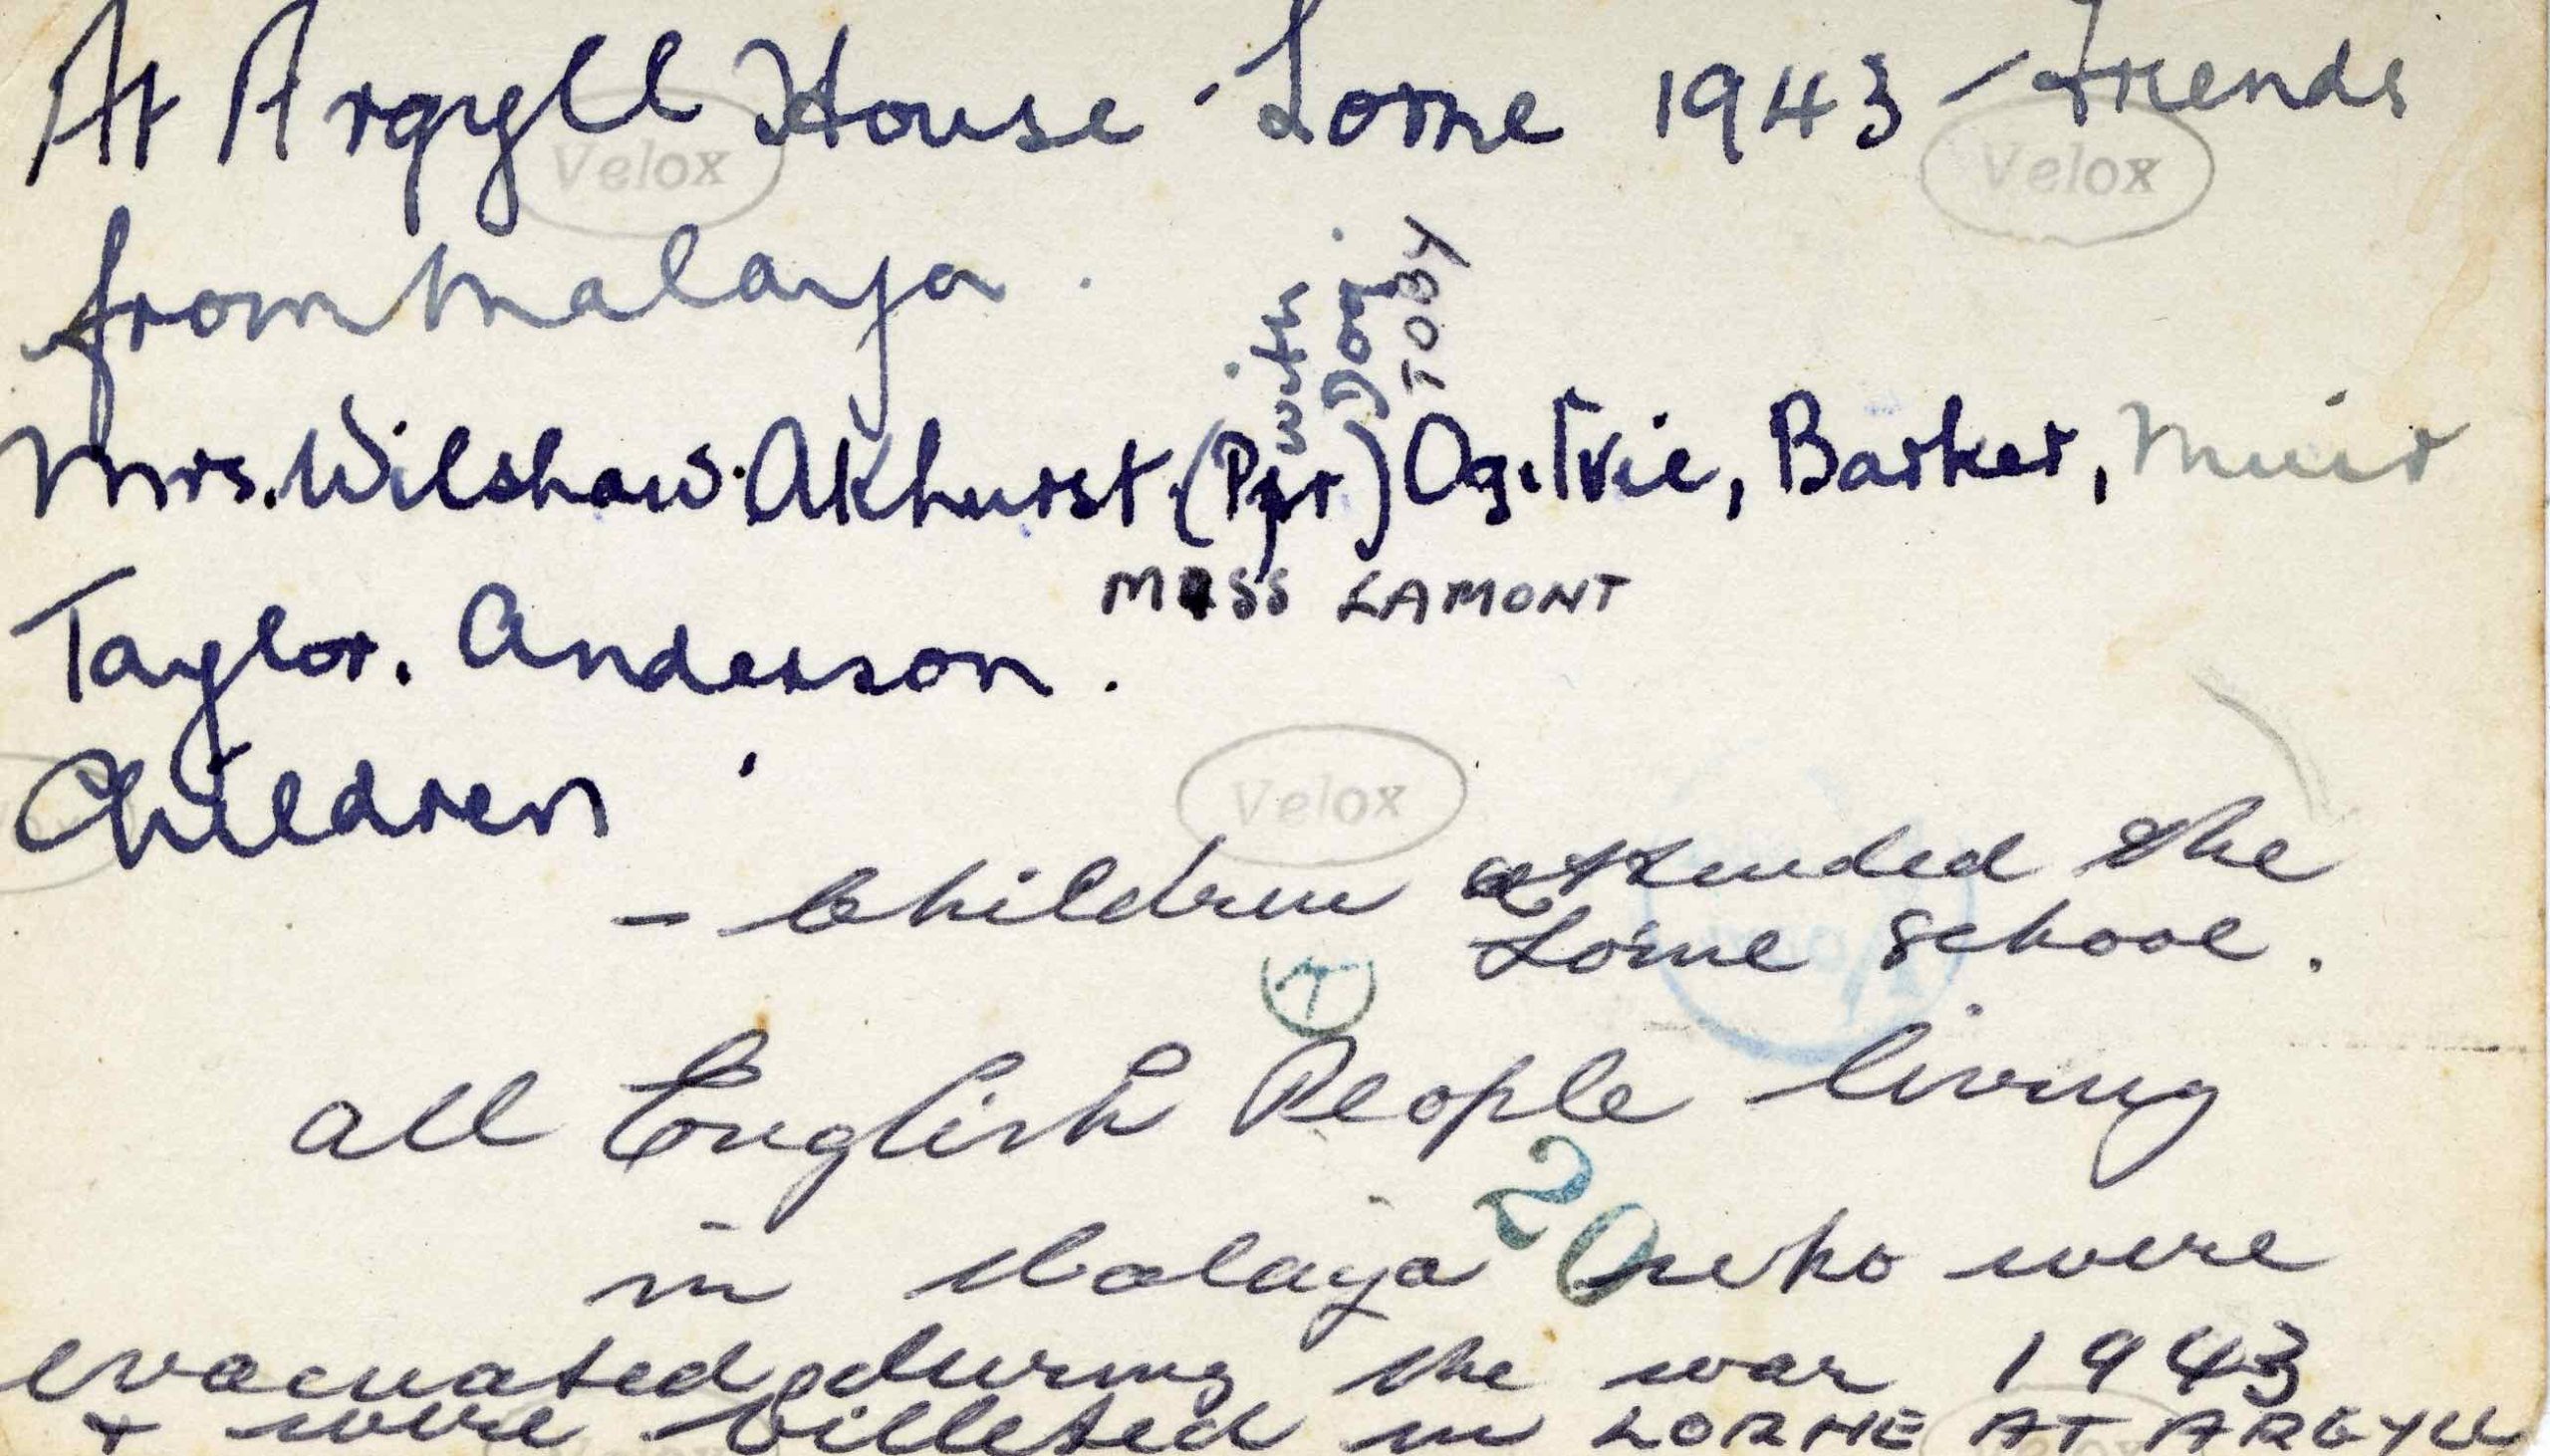 At Argyll House - Lorne 1943 - Friends
from Malaya.
with
Dog.
TOBY
Mrs. Wilshaw. Akhurst. (Pgr) Ogilvie, Barker, Muir
MISS LAMONT
Taylor. Anderson.
Children
Velox
Velox
Velox
- Children attended the
Lorne School.
all English People living
20
in Malaya who were
evacuated during the war 1943
+ were billeted in LORNE AT ARGYLL